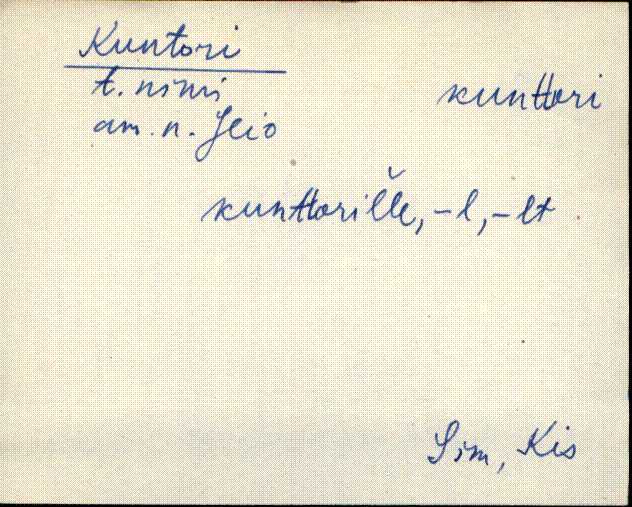 Kuntori
t. nimi
am. n. Jlio
kunttori
kunttorille, -l, -lt
Sim, Kis